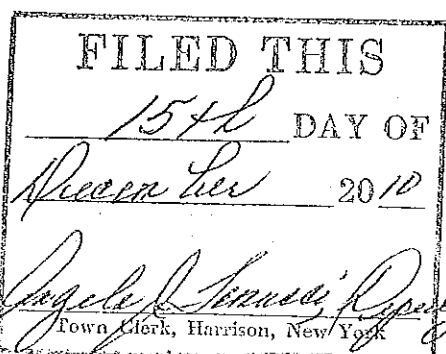 FILED THIS
15th DAY OF
December 2010
Town Clerk, Harrison, New York